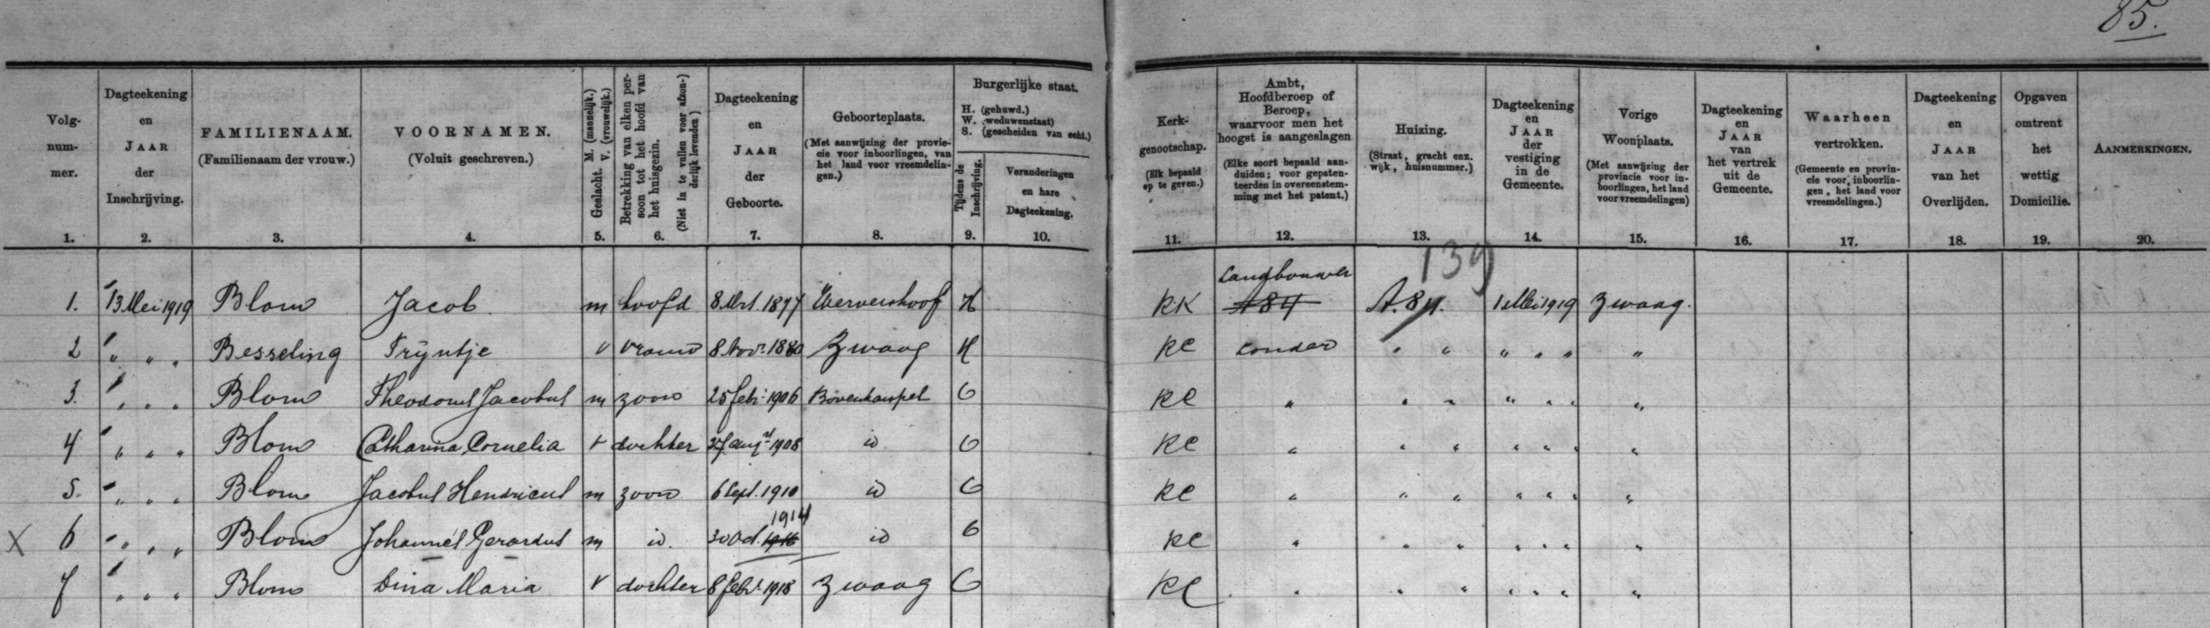 85.
Volg-
num-
mer.
1.
Dagteekening
en
JAAR
der
Inschrijving.
2.
FAMILIENAAM.
(Familienaam der vrouw.)
3.
VOORNAMEN.
(Voluit geschreven.)
4.
Geslacht. M. (mannelijk.)
V. (vrouwelijk.)
5.
Betrekking van elken per-
soon tot het hoofd van
het huisgezin.
(Niet in te vullen voor afzon-
derlijk levenden)
6.
Dagteekening
en
JAAR
der
Geboorte.
7.
Geboorteplaats.
(Met aanwijzing der provin-
cie voor inboorlingen, van
het land voor vreemdelin-
gen.)
8.
Burgerlijke staat.
H. (gehuwd.)
W. (weduwenstaat)
S. (gescheiden van echt.)
Tijdens de
Inschrijving.
9.
Veranderingen
en hare
Dagteekening.
10.
Kerk-
genootschap.
(Elk bepaald
op te geven.)
11.
Ambt,
Hoofdberoep of
Beroep,
waarvoor men het
hoogst is aangeslagen
(Elke soort bepaald aan-
duiden; voor gepaten-
teerden in overeenstem-
ming met het patent.)
12.
Huizing.
(Straat, gracht enz.
wijk, huisnummer.)
13.
Dagteekening
en
JAAR
der
vestiging
in de
Gemeente.
14.
Vorige
Woonplaats.
(Met aanwijzing der
provincie voor in-
boorlingen, het land
voor vreemdelingen)
15.
Dagteekening
en
JAAR
van
het vertrek
uit de
Gemeente.
16.
Waarheen
vertrokken.
(Gemeente en provin-
cie voor inboorlin-
gen, het land voor
vreemdelingen.)
17.
Dagteekening
en
JAAR
van het
Overlijden.
18.
Opgaven
omtrent
het
wettig
Domicilie.
19.
AANMERKINGEN.
20.
139
Landbouwer
1. 13 Mei 1919 Blom Jacob m hoofd 8 Mrt. 1877 Wervershoof H RK A 84 A. 84. 1 Mei 1919 Zwaag.
2 " " " Besseling Trijntje v vrouw 8 Nov. 1880 Zwaag H RC zonder " " " " " "
3. " " " Blom Theodorus Jacobus m zoon 25 febr. 1906 Bovenkarspel O RC " " " " " " "
4 " " " Blom Catharina Cornelia v dochter 27 augt 1908 id O RC " " " " " " "
5. " " " Blom Jacobus Hendricus m zoon 6 Sept. 1910 id O RC " " " " " " "
1914
X 6 " " " Blom Johannes Gerardus m id. 30 Oct. 1916 id O RC " " " " " " "
7 " " " Blom Dina Maria v dochter 8 febr. 1918 Zwaag O RC " " " " " " "